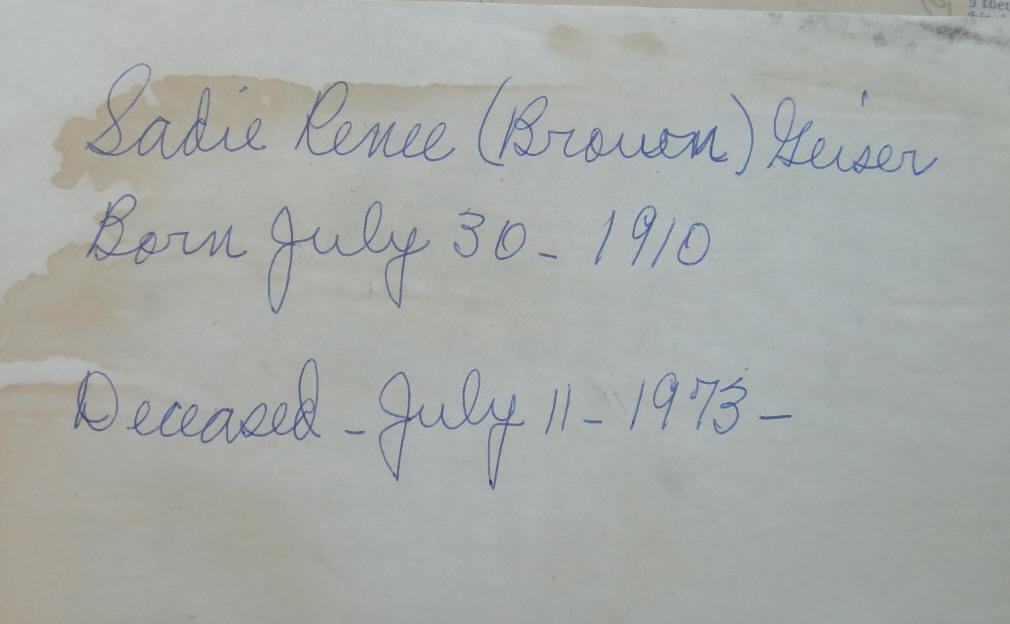 Sadie Renee (Brown) Geiser
Born July 30 - 1910
Deceased - July 11 - 1973 -